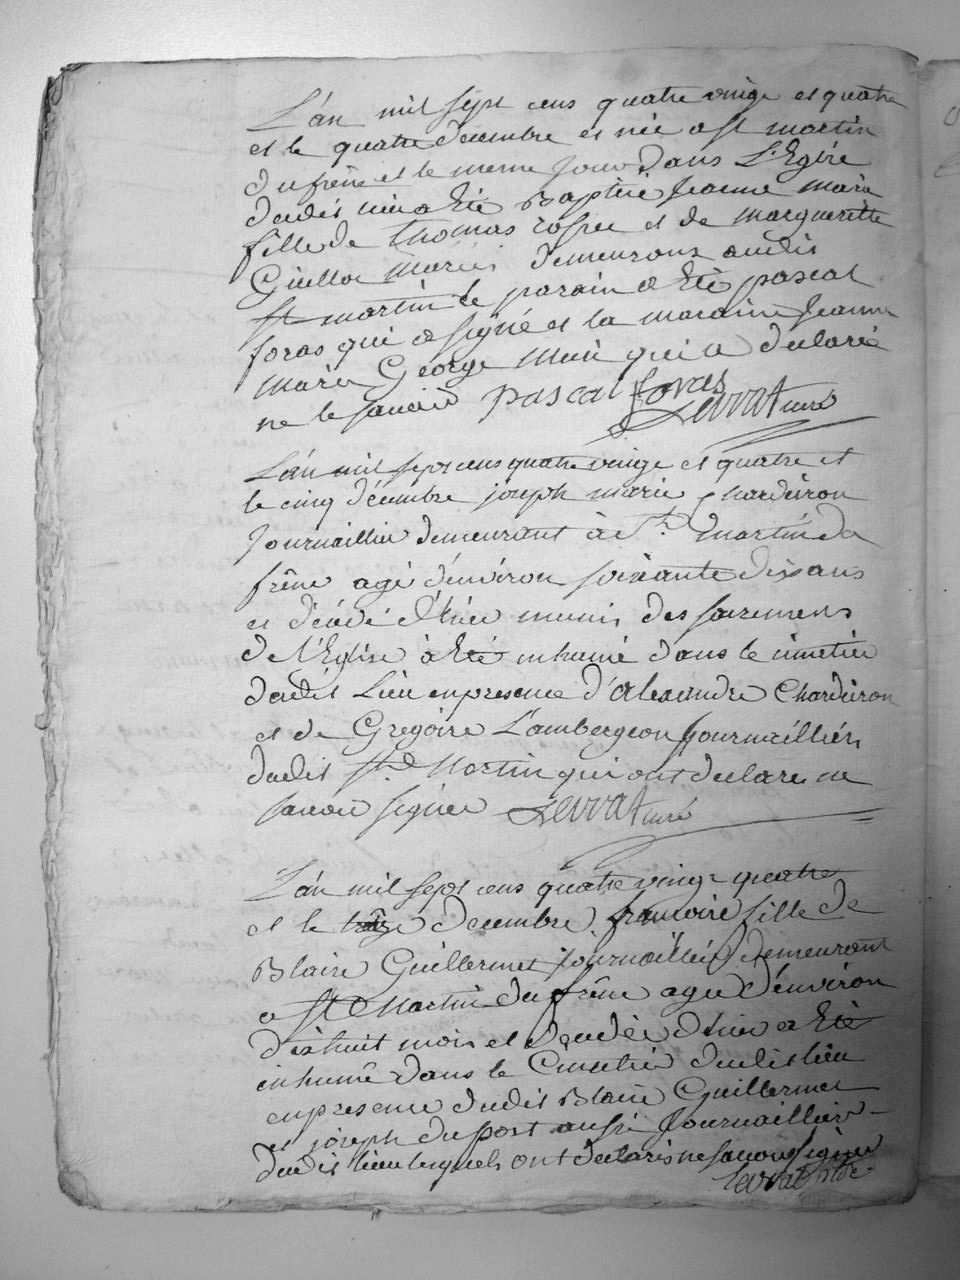 L'an mil sept cens quatre vingt et quatre
et le quatre decembre et née a st martin
du frêne et le meme jour dans L'Eglise
dudit lieu a Eté Baptisé jeanne marie
fille de Thomas et de margueritte
Guillot mariés demeurans audit
st martin le parain a Eté pascal
foras qui a signé et la maraine jeanne
marie George qui a declaré
ne le savoir pascal foras
Levrat curé
L'an mil sept cens quatre vingt et quatre et
le cinq décembre joseph marie Charduron
journaillier demeurant à st. martin du
frêne agé d'environ soixante dix ans
et décédé d'hier muni des sacremens
de l'Eglise à Eté inhumé dans le cimetier
dudit Lieu en presence d'alexandre Charduron
et de Gregoire Lambergeon journailliers
dudit st. Martin qui ont declare ne
savoir signer Levrat curé
L'an mil sept cens quatre vingt quatre
et le decembre francoise fille de
Blaise Guillermet journaillier demeurant
a st Martin du frêne agee d'environ
dixhuit mois et decedée d'hier a Eté
inhumé dans le Cimetier dudit lieu
en presence dudit Blaise Guillermet
et joseph dupont aussi journaillier
dudit lieu lesquels ont declarés ne savoir signer
Levrat